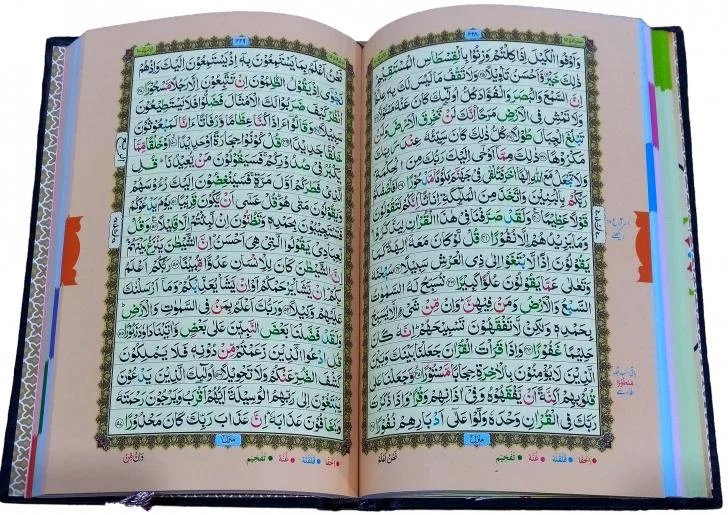 ۴۳۸
وَاَوْفُوا الْكَيْلَ اِذَا كِلْتُمْ وَزِنُوْا بِالْقِسْطَاسِ الْمُسْتَقِيْمِ
ذٰلِكَ خَيْرٌ وَّاَحْسَنُ تَاْوِيْلًا وَلَا تَقْفُ مَا لَيْسَ لَكَ بِهٖ عِلْمٌ
اِنَّ السَّمْعَ وَالْبَصَرَ وَالْفُؤَادَ كُلُّ اُولٰٓئِكَ كَانَ عَنْهُ مَسْـُٔوْلًا
وَلَا تَمْشِ فِى الْاَرْضِ مَرَحًا اِنَّكَ لَنْ تَخْرِقَ الْاَرْضَ وَلَنْ
تَبْلُغَ الْجِبَالَ طُوْلًا كُلُّ ذٰلِكَ كَانَ سَيِّئُهٗ عِنْدَ رَبِّكَ
مَكْرُوْهًا ذٰلِكَ مِمَّآ اَوْحٰٓى اِلَيْكَ رَبُّكَ مِنَ الْحِكْمَةِ
وَلَا تَجْعَلْ مَعَ اللّٰهِ اِلٰهًا اٰخَرَ فَتُلْقٰى فِيْ جَهَنَّمَ مَلُوْمًا مَّدْحُوْرًا اَفَاَصْفٰىكُمْ
رَبُّكُمْ بِالْبَنِيْنَ وَاتَّخَذَ مِنَ الْمَلٰٓئِكَةِ اِنَاثًا اِنَّكُمْ لَتَقُوْلُوْنَ
قَوْلًا عَظِيْمًا وَلَقَدْ صَرَّفْنَا فِيْ هٰذَا الْقُرْاٰنِ لِيَذَّكَّرُوْا
وَمَا يَزِيْدُهُمْ اِلَّا نُفُوْرًا قُلْ لَّوْ كَانَ مَعَهٗٓ اٰلِهَةٌ كَمَا
يَقُوْلُوْنَ اِذًا لَّابْتَغَوْا اِلٰى ذِى الْعَرْشِ سَبِيْلًا سُبْحٰنَهٗ
وَتَعٰلٰى عَمَّا يَقُوْلُوْنَ عُلُوًّا كَبِيْرًا تُسَبِّحُ لَهُ السَّمٰوٰتُ
السَّبْعُ وَالْاَرْضُ وَمَنْ فِيْهِنَّ وَاِنْ مِّنْ شَيْءٍ اِلَّا يُسَبِّحُ
بِحَمْدِهٖ وَلٰكِنْ لَّا تَفْقَهُوْنَ تَسْبِيْحَهُمْ اِنَّهٗ كَانَ
حَلِيْمًا غَفُوْرًا وَاِذَا قَرَاْتَ الْقُرْاٰنَ جَعَلْنَا بَيْنَكَ وَبَيْنَ
الَّذِيْنَ لَا يُؤْمِنُوْنَ بِالْاٰخِرَةِ حِجَابًا مَّسْتُوْرًا وَّجَعَلْنَا عَلٰى
قُلُوْبِهِمْ اَكِنَّةً اَنْ يَّفْقَهُوْهُ وَفِيْٓ اٰذَانِهِمْ وَقْرًا وَاِذَا ذَكَرْتَ
رَبَّكَ فِى الْقُرْاٰنِ وَحْدَهٗ وَلَّوْا عَلٰٓى اَدْبَارِهِمْ نُفُوْرًا
منزل ۴
اِخْفَا قَلْقَلَة غُنَّة تَفْخِيْم نَحْنُ اَعْلَمُ
۴۳۹
نَحْنُ اَعْلَمُ بِمَا يَسْتَمِعُوْنَ بِهٖٓ اِذْ يَسْتَمِعُوْنَ اِلَيْكَ وَاِذْ هُمْ
نَجْوٰٓى اِذْ يَقُوْلُ الظّٰلِمُوْنَ اِنْ تَتَّبِعُوْنَ اِلَّا رَجُلًا مَّسْحُوْرًا
اُنْظُرْ كَيْفَ ضَرَبُوْا لَكَ الْاَمْثَالَ فَضَلُّوْا فَلَا يَسْتَطِيْعُوْنَ
سَبِيْلًا وَقَالُوْٓا ءَاِذَا كُنَّا عِظَامًا وَّرُفَاتًا ءَاِنَّا لَمَبْعُوْثُوْنَ
خَلْقًا جَدِيْدًا قُلْ كُوْنُوْا حِجَارَةً اَوْ حَدِيْدًا اَوْ خَلْقًا مِّمَّا
يَكْبُرُ فِيْ صُدُوْرِكُمْ فَسَيَقُوْلُوْنَ مَنْ يُّعِيْدُنَا قُلِ
الَّذِيْ فَطَرَكُمْ اَوَّلَ مَرَّةٍ فَسَيُنْغِضُوْنَ اِلَيْكَ رُءُوْسَهُمْ
وَيَقُوْلُوْنَ مَتٰى هُوَ قُلْ عَسٰٓى اَنْ يَّكُوْنَ قَرِيْبًا يَوْمَ يَدْعُوْكُمْ
فَتَسْتَجِيْبُوْنَ بِحَمْدِهٖ وَتَظُنُّوْنَ اِنْ لَّبِثْتُمْ اِلَّا قَلِيْلًا وَقُلْ
لِّعِبَادِيْ يَقُوْلُوا الَّتِيْ هِيَ اَحْسَنُ اِنَّ الشَّيْطٰنَ يَنْزَغُ بَيْنَهُمْ
اِنَّ الشَّيْطٰنَ كَانَ لِلْاِنْسَانِ عَدُوًّا مُّبِيْنًا رَبُّكُمْ اَعْلَمُ
بِكُمْ اِنْ يَّشَاْ يَرْحَمْكُمْ اَوْ اِنْ يَّشَاْ يُعَذِّبْكُمْ وَمَآ اَرْسَلْنٰكَ
عَلَيْهِمْ وَكِيْلًا وَرَبُّكَ اَعْلَمُ بِمَنْ فِى السَّمٰوٰتِ وَالْاَرْضِ
وَلَقَدْ فَضَّلْنَا بَعْضَ النَّبِيّٖنَ عَلٰى بَعْضٍ وَّاٰتَيْنَا دَاوٗدَ زَبُوْرًا
قُلِ ادْعُوا الَّذِيْنَ زَعَمْتُمْ مِّنْ دُوْنِهٖ فَلَا يَمْلِكُوْنَ
كَشْفَ الضُّرِّ عَنْكُمْ وَلَا تَحْوِيْلًا اُولٰٓئِكَ الَّذِيْنَ يَدْعُوْنَ
يَبْتَغُوْنَ اِلٰى رَبِّهِمُ الْوَسِيْلَةَ اَيُّهُمْ اَقْرَبُ وَيَرْجُوْنَ رَحْمَتَهٗ
وَيَخَافُوْنَ عَذَابَهٗ اِنَّ عَذَابَ رَبِّكَ كَانَ مَحْذُوْرًا
منزل ۴
اِخْفَا قَلْقَلَة غُنَّة تَفْخِيْم وَاِنْ مِّنْ